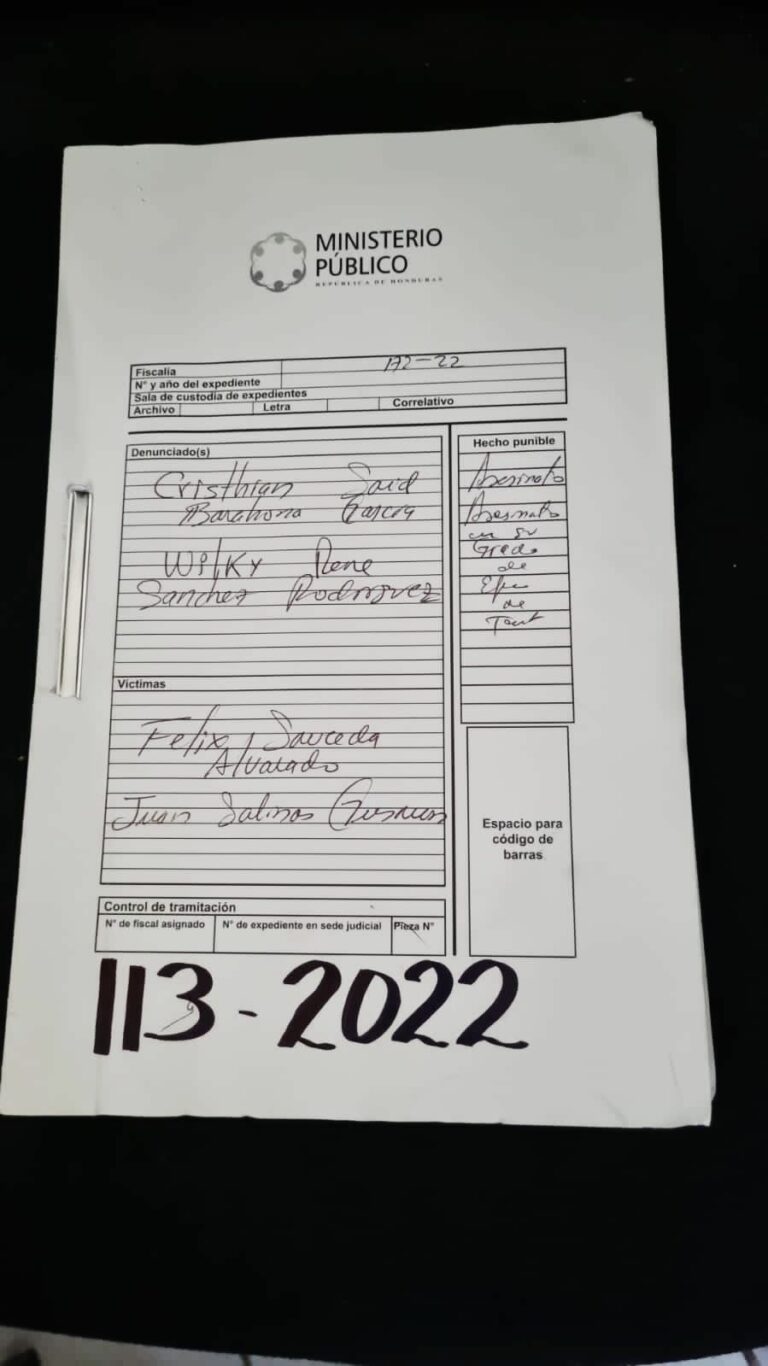 MINISTERIO
PÚBLICO
REPUBLICA DE HONDURAS
Fiscalía
172-22
N° y año del expediente
Sala de custodia de expedientes
Archivo Letra Correlativo
Denunciado(s)
Cristhian Said
Barahona Garcia
Wilky Rene
Sanchez Rodriguez
Hecho punible
Asesinato
Asesinato
en su
Grado
de
de
Tent
Víctimas
Felix Sauceda
Alvarado
Juan Salinas
Espacio para
código de
barras
Control de tramitación
N° de fiscal asignado N° de expediente en sede judicial Pieza N°
113-2022